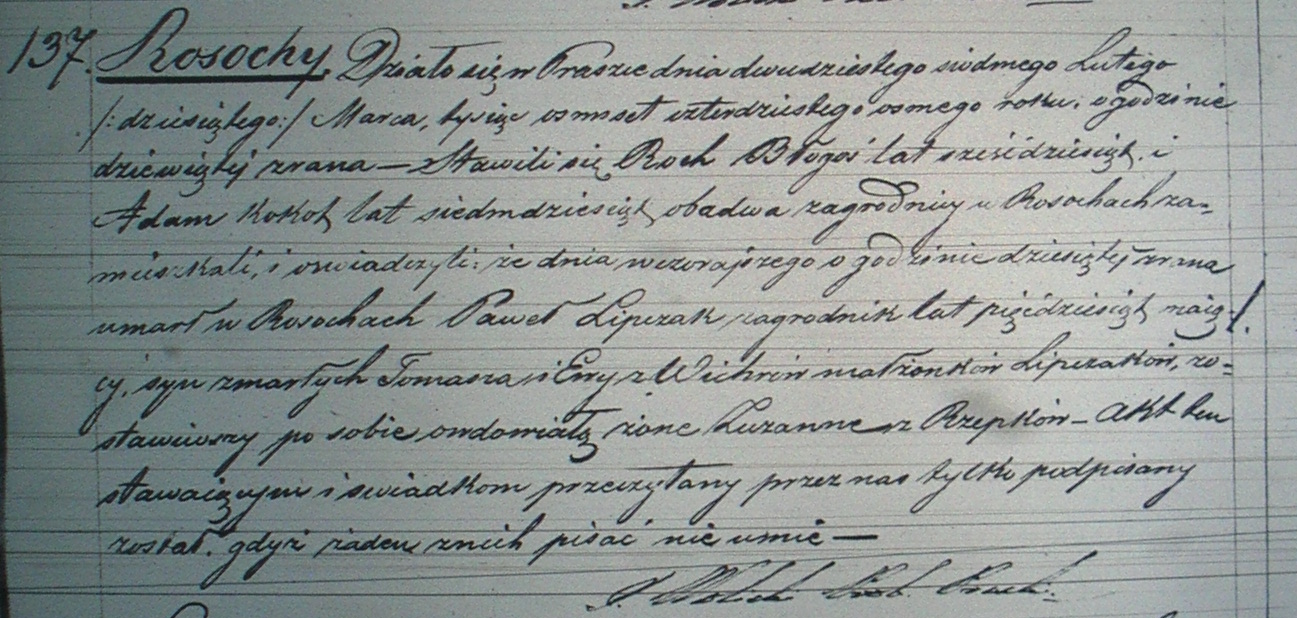 137. Rosochy. Działo się w Praszce dnia dwudziestego siodmego Lutego
/:dziesiątego:/ Marca, tysiąc osmset czterdziestego osmego roku; o godzinie
dziewiątej zrana — Stawili się Roch Błogoś lat sześćdziesiąt, i
Adam Kokot lat siedmdziesiąt obadwa zagrodnicy w Rosochach za=
mieszkali, i oswiadczyli: że dnia wczorajszego o godzinie dziesiątej zrana
umarł w Rosochach Paweł Lipczak zagrodnik lat pięćdziesiąt maią=
cy, syn zmarłych Tomasza i Ewy z małżonków Lipczaków, zo=
stawiwszy po sobie owdowiałą żonę Zuzannę z Rzepków — Akt ten
stawaiącym i swiadkom przeczytany przez nas tylko podpisany
został, gdyż żaden znich pisać nie umie —